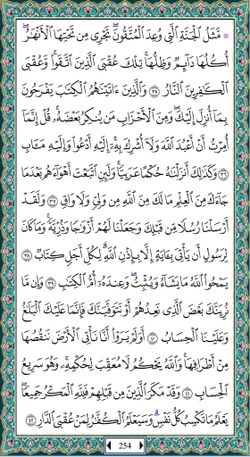 ۞ مَّثَلُ ٱلْجَنَّةِ ٱلَّتِى وُعِدَ ٱلْمُتَّقُونَ ۖ تَجْرِى مِن تَحْتِهَا ٱلْأَنْهَٰرُ ۖ
أُكُلُهَا دَآئِمٌ وَظِلُّهَا ۚ تِلْكَ عُقْبَى ٱلَّذِينَ ٱتَّقَوا۟ ۖ وَّعُقْبَى
ٱلْكَٰفِرِينَ ٱلنَّارُ ٣٥ وَٱلَّذِينَ ءَاتَيْنَٰهُمُ ٱلْكِتَٰبَ يَفْرَحُونَ
بِمَآ أُنزِلَ إِلَيْكَ ۖ وَمِنَ ٱلْأَحْزَابِ مَن يُنكِرُ بَعْضَهُۥ ۚ قُلْ إِنَّمَآ
أُمِرْتُ أَنْ أَعْبُدَ ٱللَّهَ وَلَآ أُشْرِكَ بِهِۦٓ ۚ إِلَيْهِ أَدْعُوا۟ وَإِلَيْهِ مَـَٔابِ
٣٦ وَكَذَٰلِكَ أَنزَلْنَٰهُ حُكْمًا عَرَبِيًّا ۚ وَلَئِنِ ٱتَّبَعْتَ أَهْوَآءَهُم بَعْدَمَا
جَآءَكَ مِنَ ٱلْعِلْمِ مَا لَكَ مِنَ ٱللَّهِ مِن وَلِىٍّ وَلَا وَاقٍ ٣٧ وَلَقَدْ
أَرْسَلْنَا رُسُلًا مِّن قَبْلِكَ وَجَعَلْنَا لَهُمْ أَزْوَٰجًا وَذُرِّيَّةً ۚ وَمَا كَانَ
لِرَسُولٍ أَن يَأْتِىَ بِـَٔايَةٍ إِلَّا بِإِذْنِ ٱللَّهِ ۗ لِكُلِّ أَجَلٍ كِتَابٌ ٣٨
يَمْحُوا۟ ٱللَّهُ مَا يَشَآءُ وَيُثْبِتُ ۖ وَعِندَهُۥٓ أُمُّ ٱلْكِتَٰبِ ٣٩ وَإِن مَّا
نُرِيَنَّكَ بَعْضَ ٱلَّذِى نَعِدُهُمْ أَوْ نَتَوَفَّيَنَّكَ فَإِنَّمَا عَلَيْكَ ٱلْبَلَٰغُ
وَعَلَيْنَا ٱلْحِسَابُ ٤٠ أَوَلَمْ يَرَوْا۟ أَنَّا نَأْتِى ٱلْأَرْضَ نَنقُصُهَا
مِنْ أَطْرَافِهَا ۚ وَٱللَّهُ يَحْكُمُ لَا مُعَقِّبَ لِحُكْمِهِۦ ۚ وَهُوَ سَرِيعُ
ٱلْحِسَابِ ٤١ وَقَدْ مَكَرَ ٱلَّذِينَ مِن قَبْلِهِمْ فَلِلَّهِ ٱلْمَكْرُ جَمِيعًا ۖ
يَعْلَمُ مَا تَكْسِبُ كُلُّ نَفْسٍ ۗ وَسَيَعْلَمُ ٱلْكُفَّٰرُ لِمَنْ عُقْبَى ٱلدَّارِ ٤٢
254